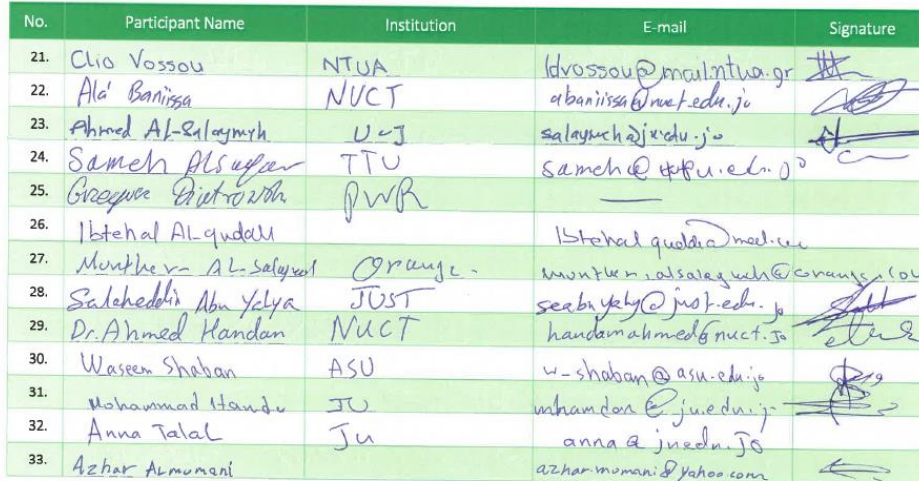 No. Participant Name Institution E-mail Signature
21. Clio Vossou NTUA ldvossou@mail.ntua.gr
22. Ala' Baniissa NUCT abaniissa@nuct.edu.jo
23. Ahmed Al-Salaymeh U-J salaymeh@ju.edu.jo
24. Sameh TTU sameh@
25. PWR —
26. Ibtehal AL-qudah
27. Munther Orange
28. Salaheddin Abu Yahya JUST seabuyahy@just.edu.jo
29. Dr. Ahmed Handan NUCT handamahmed@nuct.Jo
30. Waseem Shaban ASU w-shaban@asu.edu.jo
31. Mohammad JU mhamdan@ju.edu.j
32. Anna Talal Ju anna@ju.edu.Jo
33. Azhar ALmomani azhar.momani@yahoo.com